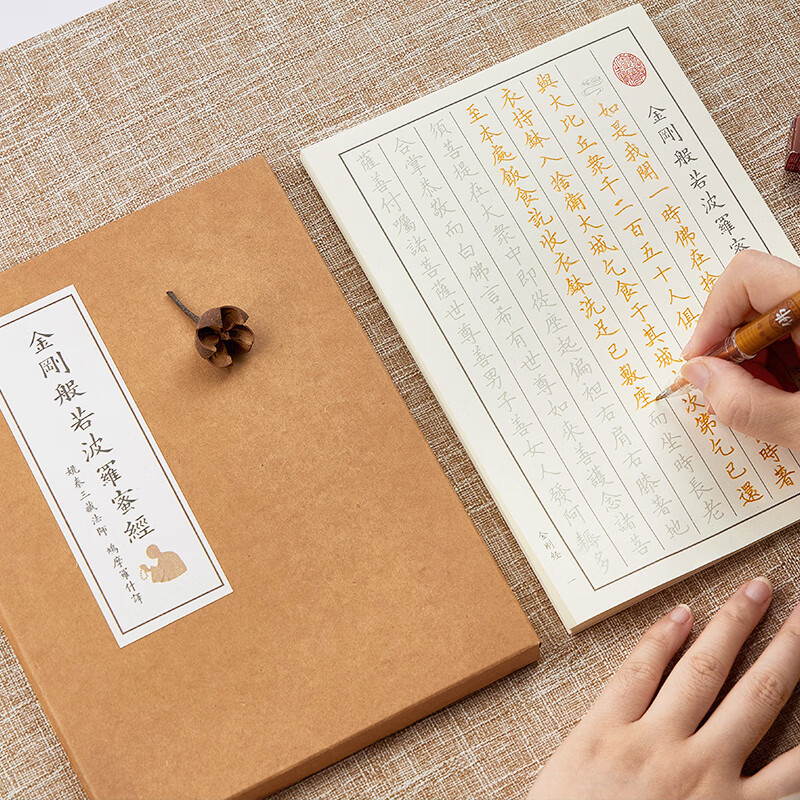 金剛般若波羅蜜經
姚秦三藏法師 鳩摩羅什譯
金剛般若波羅蜜
如是我聞一時佛在捨
與大比丘衆千二百五十人俱 時著
衣持鉢入捨衛大城乞食于其城 次第乞已還
至本處飯食訖收衣鉢洗足已敷座而坐時長老
須菩提在大衆中即從座起偏袒右肩右膝著地
合掌恭敬而白佛言希有世尊如來善護念諸菩
薩善付囑諸菩薩世尊善男子善女人發阿耨多
金剛經